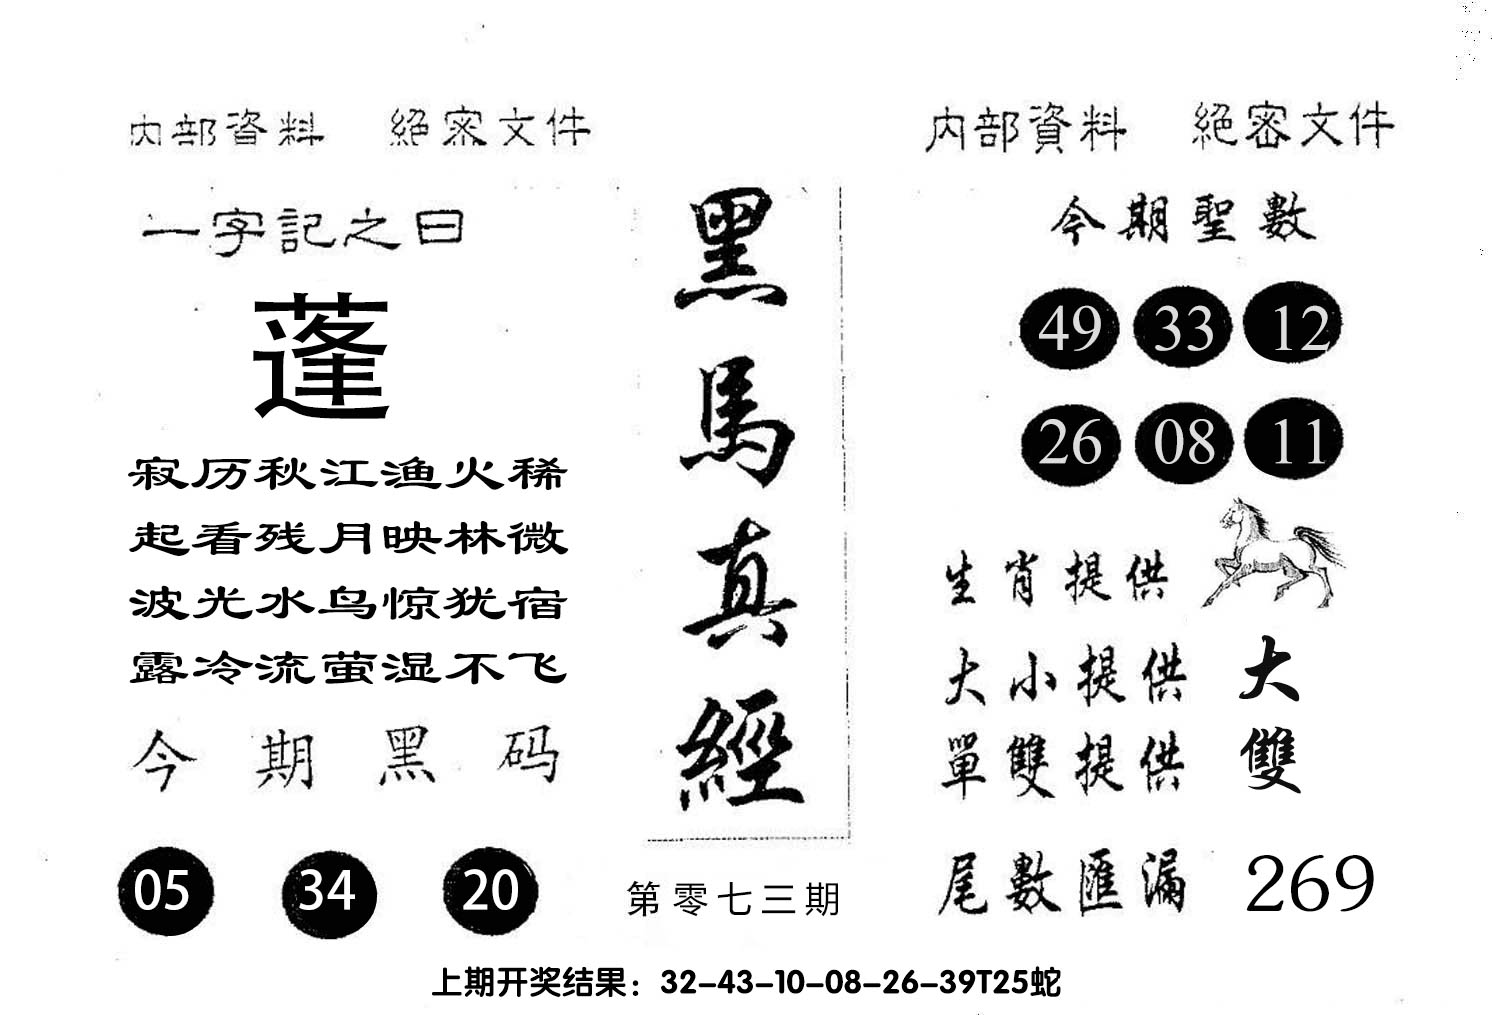 内部資料 絕密文件
一字記之曰
蓬
寂历秋江渔火稀
起看残月映林微
波光水鸟惊犹宿
露冷流萤湿不飞
今期黑码
05 34 20
黑馬真經
第零七三期
内部資料 絕密文件
今期聖數
49 33 12
26 08 11
生肖提供
大小提供 大
單雙提供 雙
尾數匯漏 269
上期开奖结果：32-43-10-08-26-39T25蛇